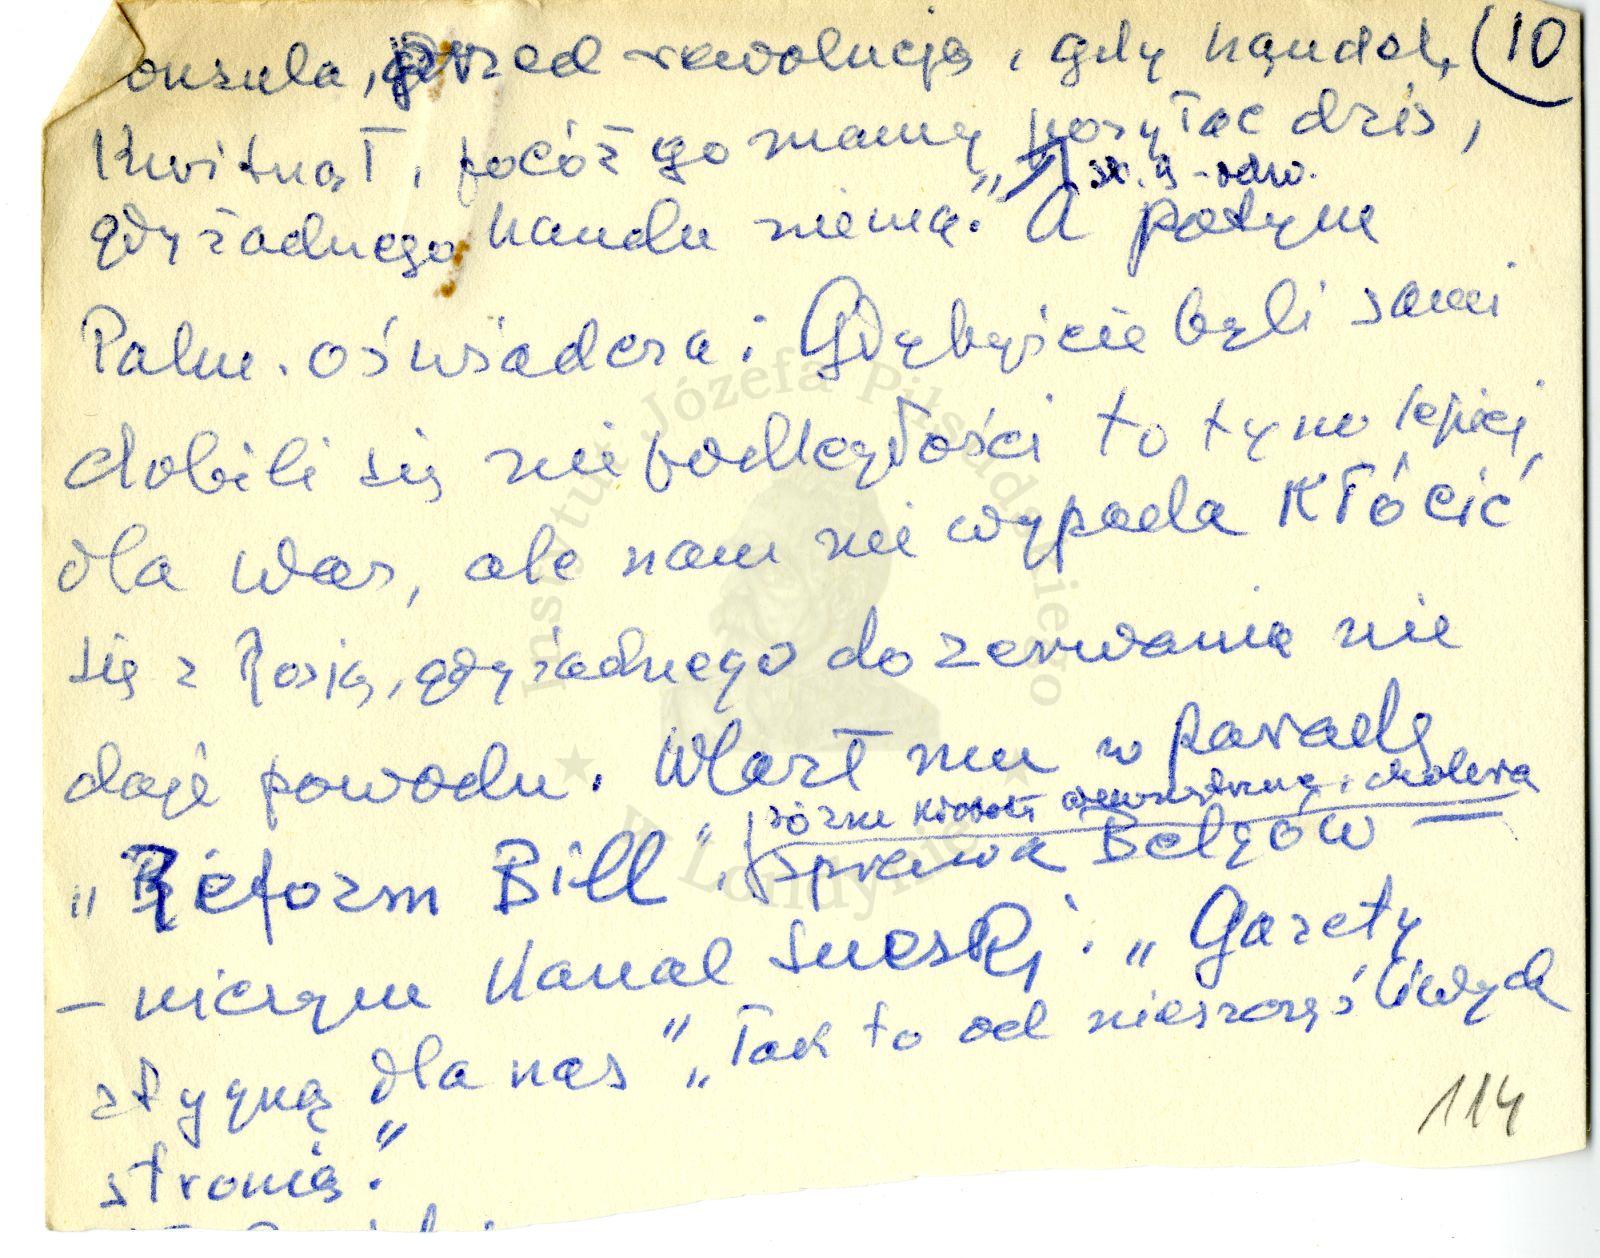 onsula, przed rewolucją, gdy handel (10
Kwitnął, pocóż go mamy posyłac dziś,
gdy żadnego handlu niema." A potym
Palm. oświadcza: Gdybyście byli sami
dobili się niepodległości to tym lepiej
dla was, ale nam nie wypada kłócić
się z Rosją, gdy żadnego do zerwania nie
daje powodu. Wlazł mu w paradę
różne kłopoty wewnętrzne, cholera
"Reform Bill", sprawa Belgów
- niczym Kanał Sueski. "Gazety
stygną dla nas" "Tak to od nieszczęśliwych
stronią."
114
Instytut Józefa Piłsudskiego
w Londynie